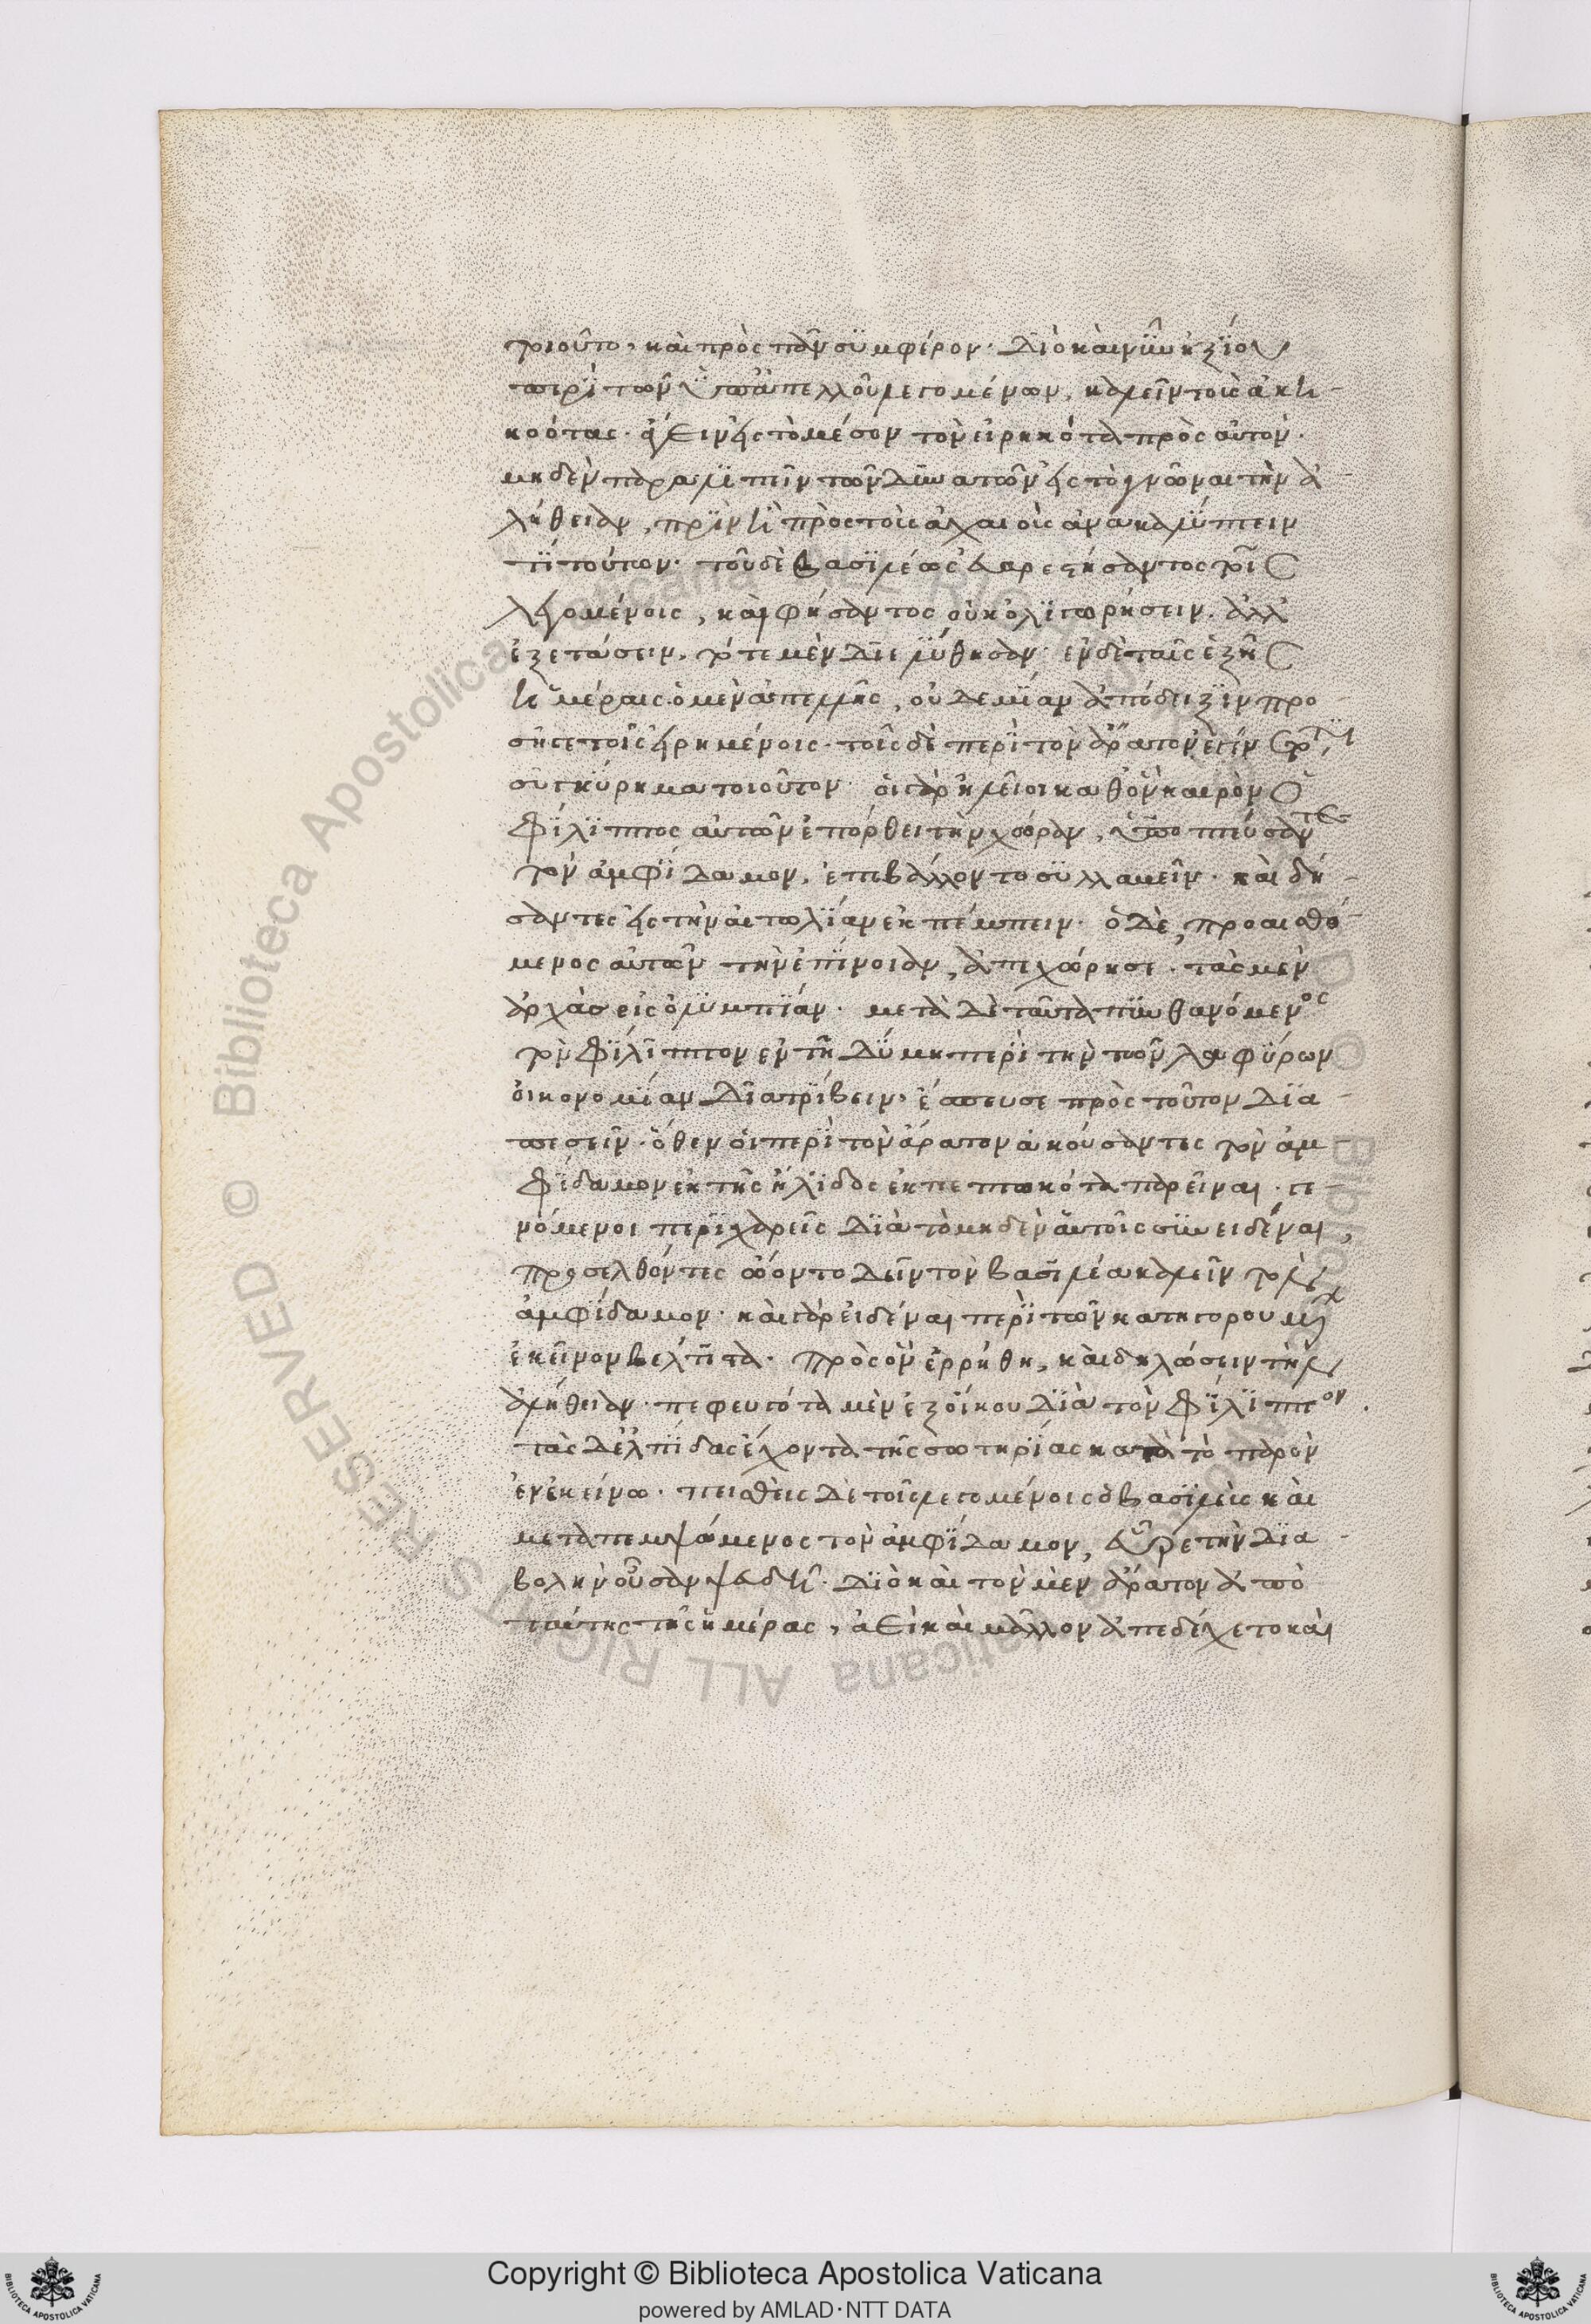 τοιοῦτο, καὶ πρὸς πᾶν συμφέρον. Διὸ καὶ νῦν ἠξίου
περὶ τῶν ὑπ' ἀπελλοῦ λεγομένων, καλεῖν τοὺς ἀκη-
κοότας. ἄγειν εἰς τὸ μέσον τὸν εἰρηκότα πρὸς αὐτόν.
μηδὲν παραλιπεῖν τῶν δυνατῶν εἰς τὸ γνῶναι τὴν ἀ-
λήθειαν, πρὶν ἢ πρὸς τοὺς ἀχαιοὺς ἀνακαλύπτειν
τι τούτων. τοῦ δὲ βασιλέως εὐαρεστήσαντος τοῖς
λεγομένοις, καὶ φήσαντος οὐκ ὀλιγωρήσειν. ἀλλ'
ἐξετάσειν, τότε μὲν διελύθησαν. ἐν δὲ ταῖς ἑξῆς
ἡμέραις ὁ μὲν ἀπελλῆς, οὐδεμίαν ἀπόδειξιν προ
σῆγε τοῖς εἰρημένοις. τοῖς δὲ περὶ τὸν ἄρατον ἐγένετό τι
συγκύρημα τοιοῦτον. οἱ γὰρ ἠλεῖοι καθ' ὃν καιρὸν ὁ
Φίλιππος αὐτῶν ἐπόρθει τὴν χώραν, ὑποπτεύσαντες
τὸν ἀμφίδαμον, ἐπεβάλλοντο συλλαβεῖν. καὶ δή-
σαντες εἰς τὴν αἰτωλίαν ἐκπέμπειν. ὁ δὲ, προαισθό-
μενος αὐτῶν τὴν ἐπίνοιαν, ἀπεχώρησε. τὰς μὲν
ἀρχὰς εἰς ὀλυμπίαν. μετὰ δὲ ταῦτα πυνθανόμενος
τὸν Φίλιππον ἐν τῇ Δύμῃ περὶ τὴν τῶν λαφύρων
οἰκονομίαν διατρίβειν, ἔσπευσε πρὸς τοῦτον δια-
πεσεῖν. ὅθεν οἱ περὶ τὸν ἄρατον ἀκούσαντες τὸν ἀμ-
φίδαμον ἐκ τῆς ἤλιδος ἐκπεπτωκότα παρεῖναι. γε-
νόμενοι περιχαρεῖς διὰ τὸ μηδὲν αὑτοῖς συνειδέναι,
προσελθόντες ᾤοντο δεῖν τὸν βασιλέα καλεῖν τὸν
ἀμφίδαμον. καὶ γὰρ εἰδέναι περὶ τῶν κατηγορουμένων
ἐκεῖνον βέλτιστα. πρὸς ὃν ἐρρήθη, καὶ δηλώσειν τὴν
ἀλήθειαν. πεφευγότα μὲν ἐξ οἴκου διὰ τὸν Φίλιππον.
τὰς δ' ἐλπίδας ἔχοντα τῆς σωτηρίας κατὰ τὸ παρὸν
ἐν ἐκείνῳ. πεισθεὶς δὲ τοῖς λεγομένοις ὁ βασιλεὺς καὶ
μεταπεμψάμενος τὸν ἀμφίδαμον, εὗρε τὴν δια-
βολὴν οὖσαν ψευδῆ. διὸ καὶ τὸν μὲν ἄρατον ἀπὸ
ταύτης τῆς ἡμέρας, ἀεὶ καὶ μᾶλλον ἀπεδέχετο καὶ
Copyright © Biblioteca Apostolica Vaticana
powered by AMLAD·NTT DATA